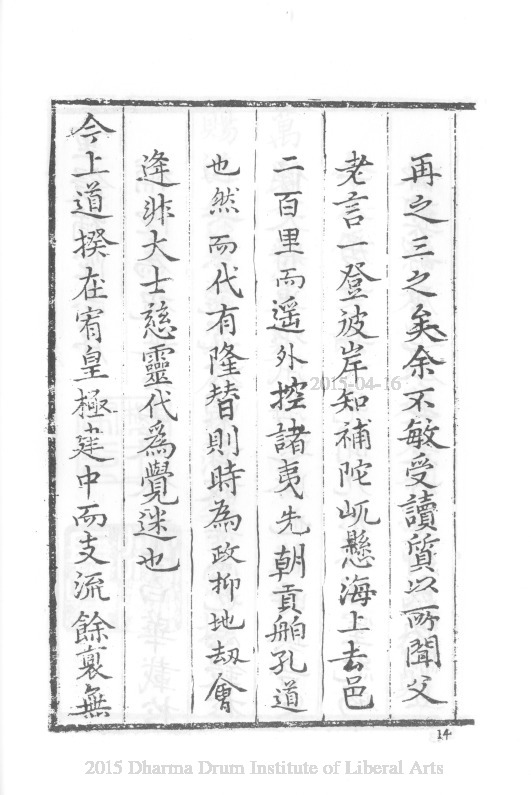 再之三之矣余不敏受讀質以所聞父
老言一登彼岸知補陀屼懸海上去邑
二百里而遥外控諸夷先朝貢舶孔道
也然而代有隆替則時為政抑地劫會
逢非大士慈靈代爲覺迷也
今上道揆在宥皇極建中而支流餘裔無
2015-04-16
14
2015 Dharma Drum Institute of Liberal Arts